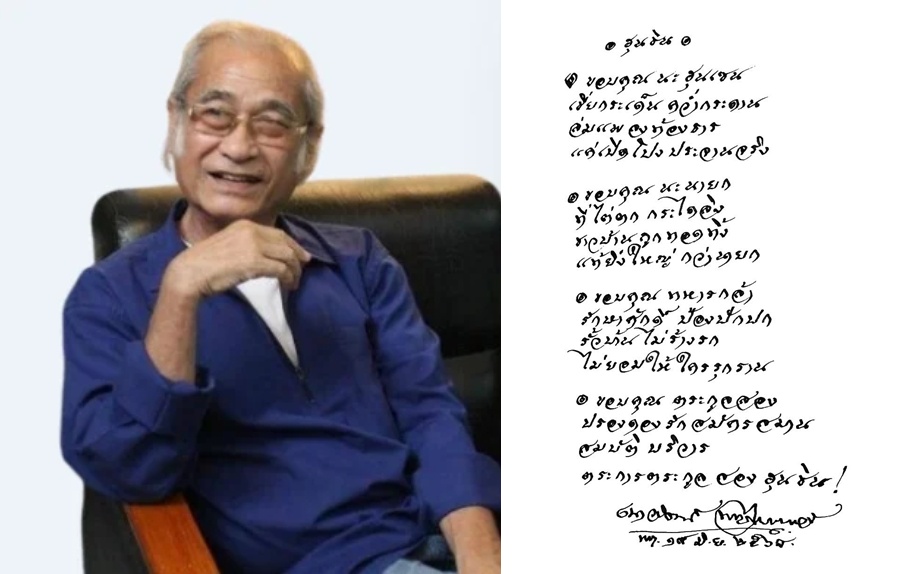 ๏ ฮุนซิน ๏
๏ ขอบคุณ นะ ฮุนเซน
เขี่ยกระเด็น คว่ำกระดาน
อุ้มแพ องท้องธาร
แต่เปิดโปง ประจานจริง
๏ ขอบคุณ นะ นายก
ที่ไต่ตก กระไดลิง
ชาวบ้าน ถูกทอดทิ้ง
แท้ยิ่งใหญ่ กว่านายก
๏ ขอบคุณ ทหารกล้า
รักษาศักดิ์ ป้องปักปก
รั้วบ้าน ไม่ร้างรก
ไม่ยอมให้ ใครรุกราน
๏ ขอบคุณ ตระกูลสอง
ปรองดองรัก สมัครสมาน
สมบัติ บริวาร
ตระการตระกูล สอง ฮุนซิน!
พฤ. ๑๙ มิ.ย. ๒๕๖๘.